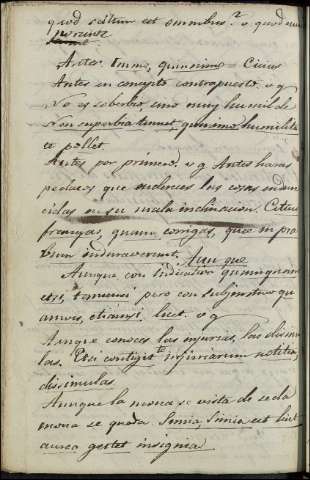 quod scitum est omnibus? v. quod
Antes. Immo, quinimo. Cicius
Antes en concepto contrapuesto. v g
No es soberbio, sino muy humilde
Non superbia tumet, quinimo humilita
te pollet.
Antes por primero. v g Antes haras
pedazos que endereces las cosas endure
cidas en su mala inclinacion. Citius
frangas, quam corrigas, quae in pra
bum induraverunt. Aunque
Aunque con Indicativo quamquam
etsi, tametsi pero con subjuntivo qu
amvis, etiamsi, licet. v g
Aunque conoces las injurias, las disimu
las. Etsi contigit te injuriarum notitia,
dissimulas.
Aunque la mona se vista de seda
mona se queda Simia, Simia est licet
aurea gestet insignia